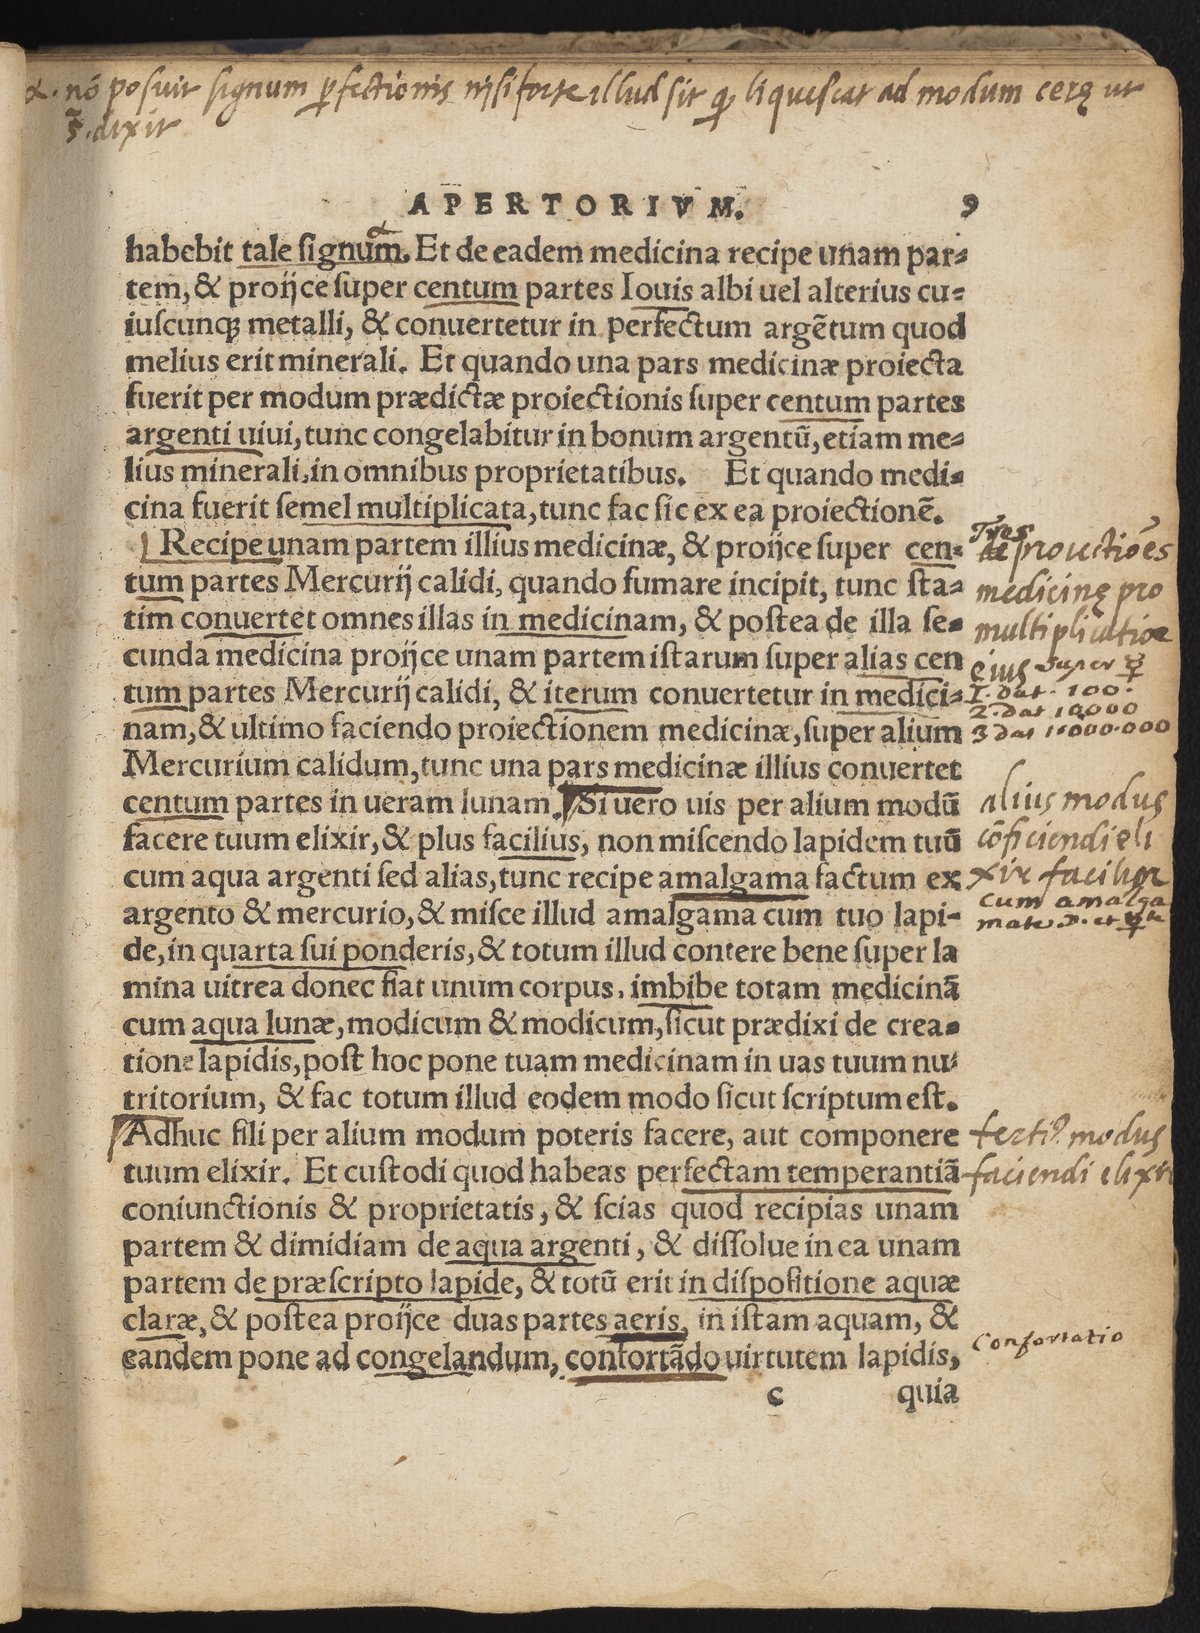 α. nō posuit signum ꝑfectionis nisi forte illud sit ꝙ liquescat ad modum cerę ut
s̄. dixit
APERTORIVM. 9
habebit tale ſignum. Et de eadem medicina recipe unam par-
tem, & proijce ſuper centum partes Iouis albi uel alterius cu-
iuſcunqꝫ metalli, & conuertetur in perfectum argẽtum quod
melius erit minerali. Et quando una pars medicinæ proiecta
fuerit per modum prædictæ proiectionis ſuper centum partes
argenti uiui, tunc congelabitur in bonum argentū, etiam me-
lius minerali, in omnibus proprietatibus. Et quando medi-
cina fuerit ſemel multiplicata, tunc fac ſic ex ea proiectionẽ.
Recipe unam partem illius medicinæ, & proijce ſuper cen-
tum partes Mercurij calidi, quando fumare incipit, tunc ſta-
tim conuertet omnes illas in medicinam, & poſtea de illa ſe-
cunda medicina proijce unam partem iſtarum ſuper alias cen
tum partes Mercurij calidi, & iterum conuertetur in medici-
nam, & ultimo faciendo proiectionem medicinæ, ſuper alium
Mercurium calidum, tunc una pars medicinæ illius conuertet
centum partes in ueram lunam. Si uero uis per alium modū
facere tuum elixir, & plus facilius, non miſcendo lapidem tuū
cum aqua argenti ſed alias, tunc recipe amalgama factum ex
argento & mercurio, & miſce illud amalgama cum tuo lapi-
de, in quarta ſui ponderis, & totum illud contere bene ſuper la
mina uitrea donec fiat unum corpus, imbibe totam medicinā
cum aqua lunæ, modicum & modicum, ſicut prædixi de crea-
tione lapidis, poſt hoc pone tuam medicinam in uas tuum nu-
tritorium, & fac totum illud eodem modo ſicut ſcriptum eſt.
Adhuc fili per alium modum poteris facere, aut componere
tuum elixir. Et cuſtodi quod habeas perfectam temperantiā
coniunctionis & proprietatis, & ſcias quod recipias unam
partem & dimidiam de aqua argenti, & diſſolue in ea unam
partem de præſcripto lapide, & totū erit in diſpoſitione aquæ
claræ, & poſtea proijce duas partes aeris, in iſtam aquam, &
eandem pone ad congelandum, confortādo uirtutem lapidis,
c quia
Tres
proiectiōes
medicinę pro
multiplicatione
eius super ☿
1. dat. 100.
2. dat 10000
3 dat 1.000.000
alius modus
cōficiendi eli
xir facilior
cum amalga
mate ☽. et ☿
tertiꝰ modus
faciendi elixir
Confortatio